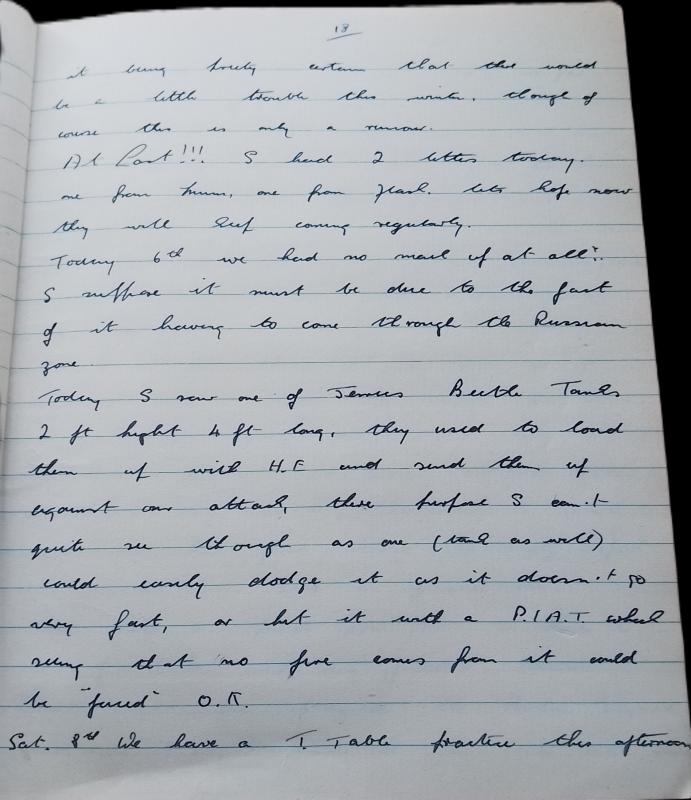 13
it being pretty certain that there would
be a little trouble this winter. though of
course this is only a rumour.
At Last!!! I had 2 letters today.
one from mum, one from Flash. lets hope now
they will keep coming regularly.
Today 6th we had no mail up at all!
I suppose it must be due to the fact
of it having to come through the Russian
zone.
Today I saw one of Jerries Beetle Tanks
2 ft hight 4 ft long, they used to load
them up with H.E and send them up
against our attack, there purpose I can't
quite see though as one (tank as well)
could easily dodge it as it doesn't go
very fast, or hit it with a P.I.A.T. which
seeing that no fire comes from it could
be "fused" O.K.
Sat. 8th We have a T. Table practice this afternoon